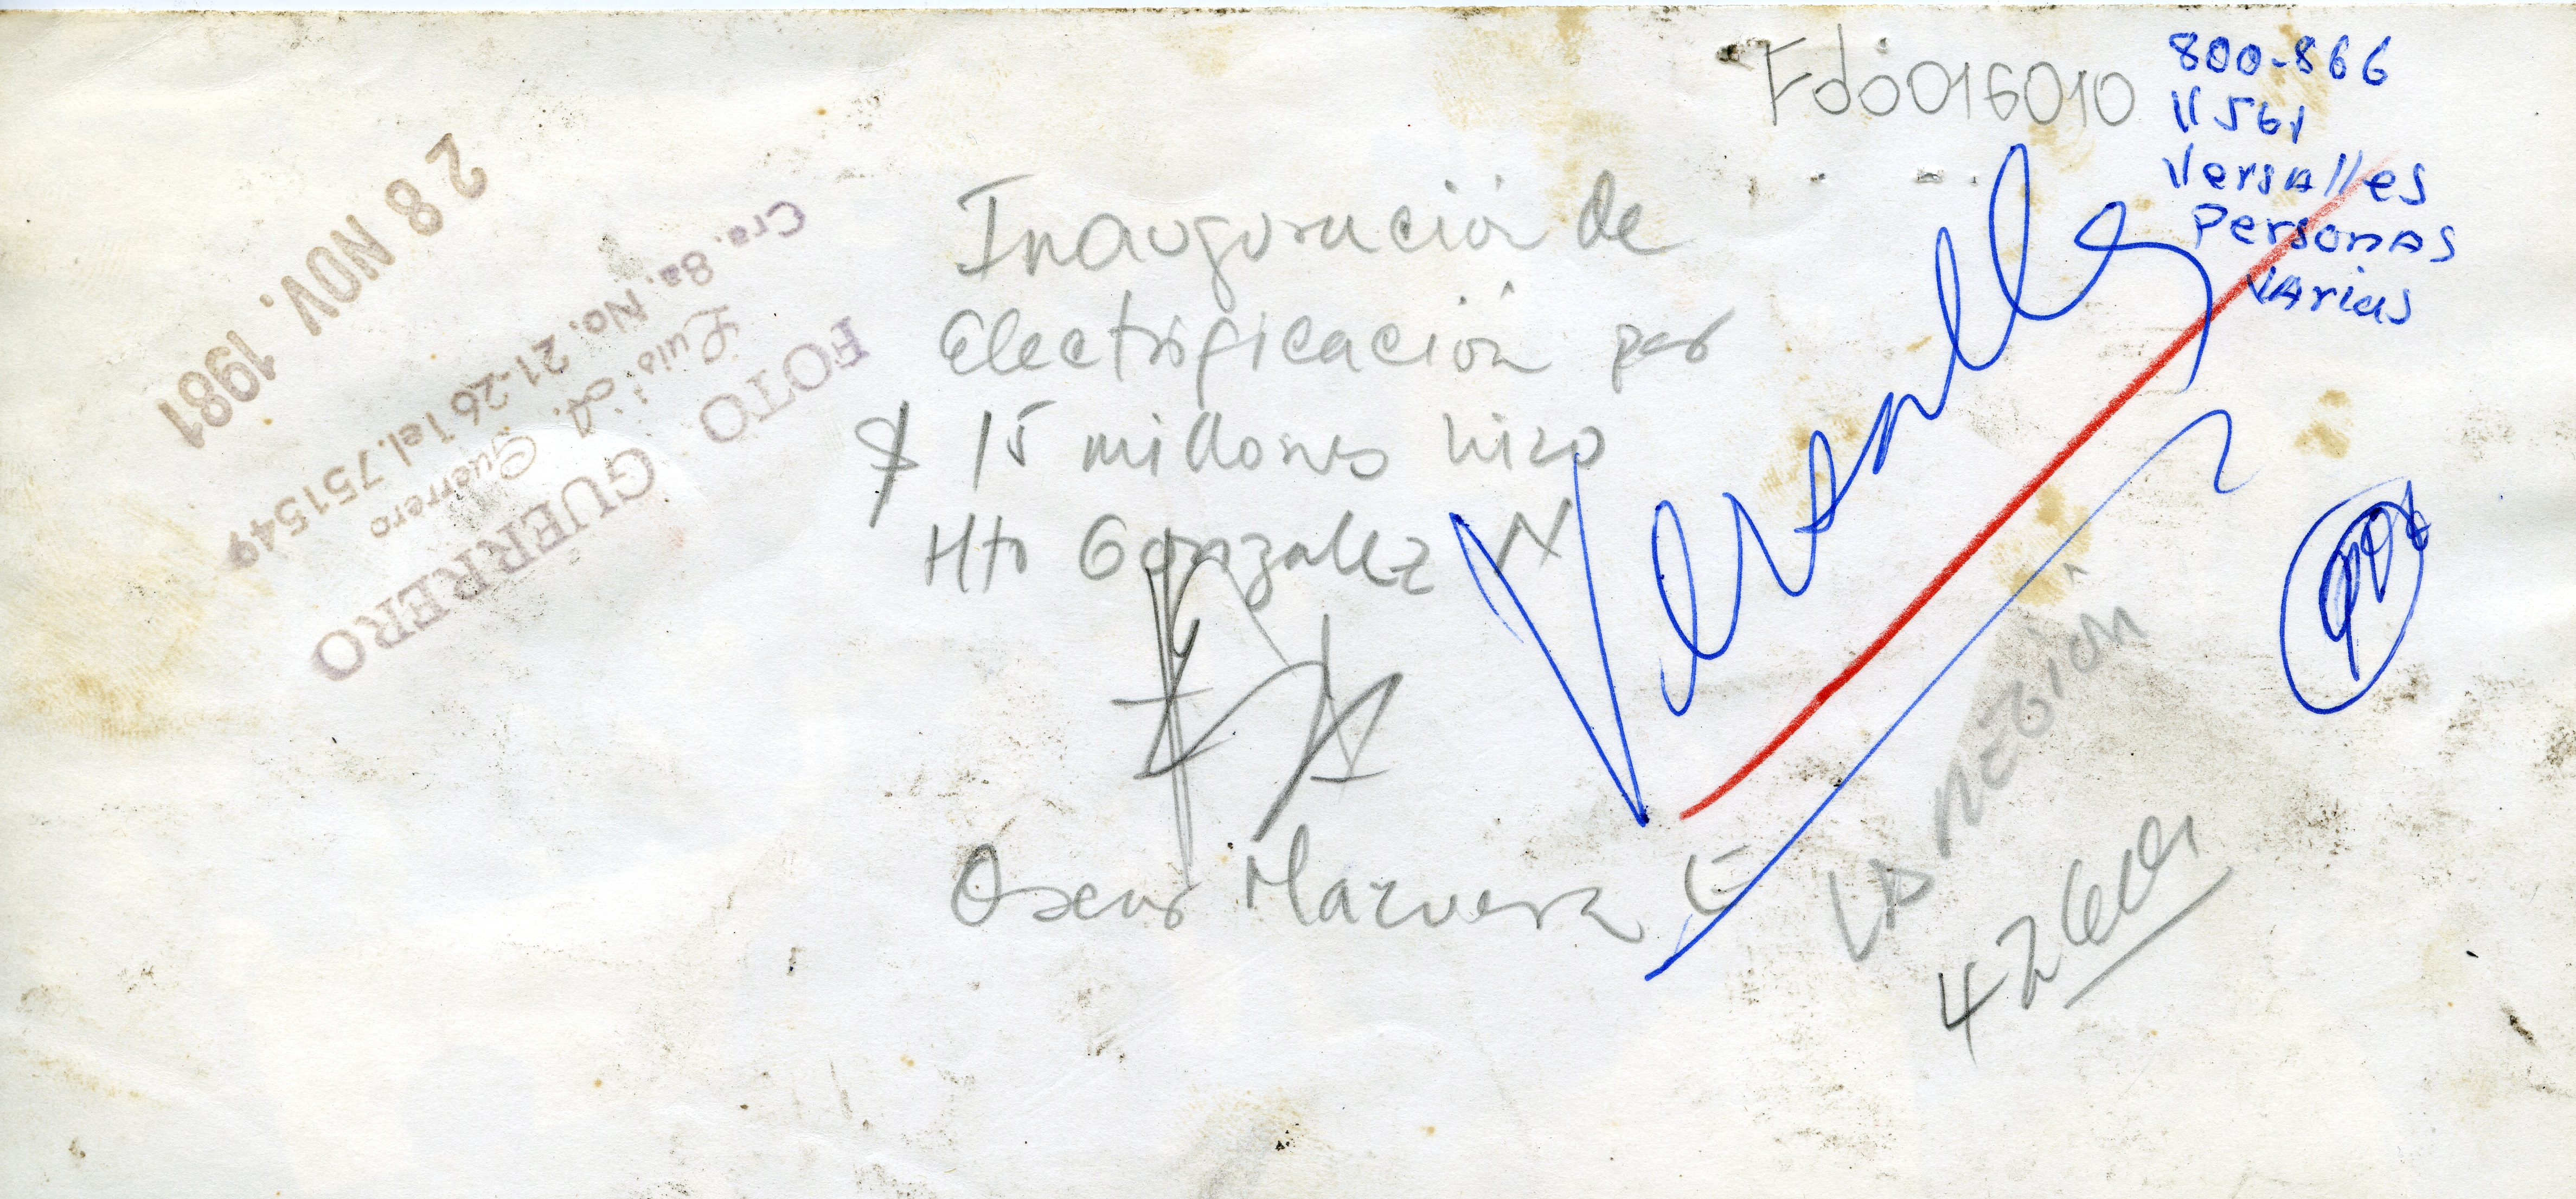 Fdo016010
800-866
11561
Versalles
Personas
varias
28 NOV. 1981
FOTO GUERRERO
Luis A. Guerrero
Cra. 8a. No. 21-26 Tel. 751549
Inauguración de
Electrificación por
$ 15 millones hizo
Hto Gonzalez N
Oscar Mazuera
Versalles
La Región